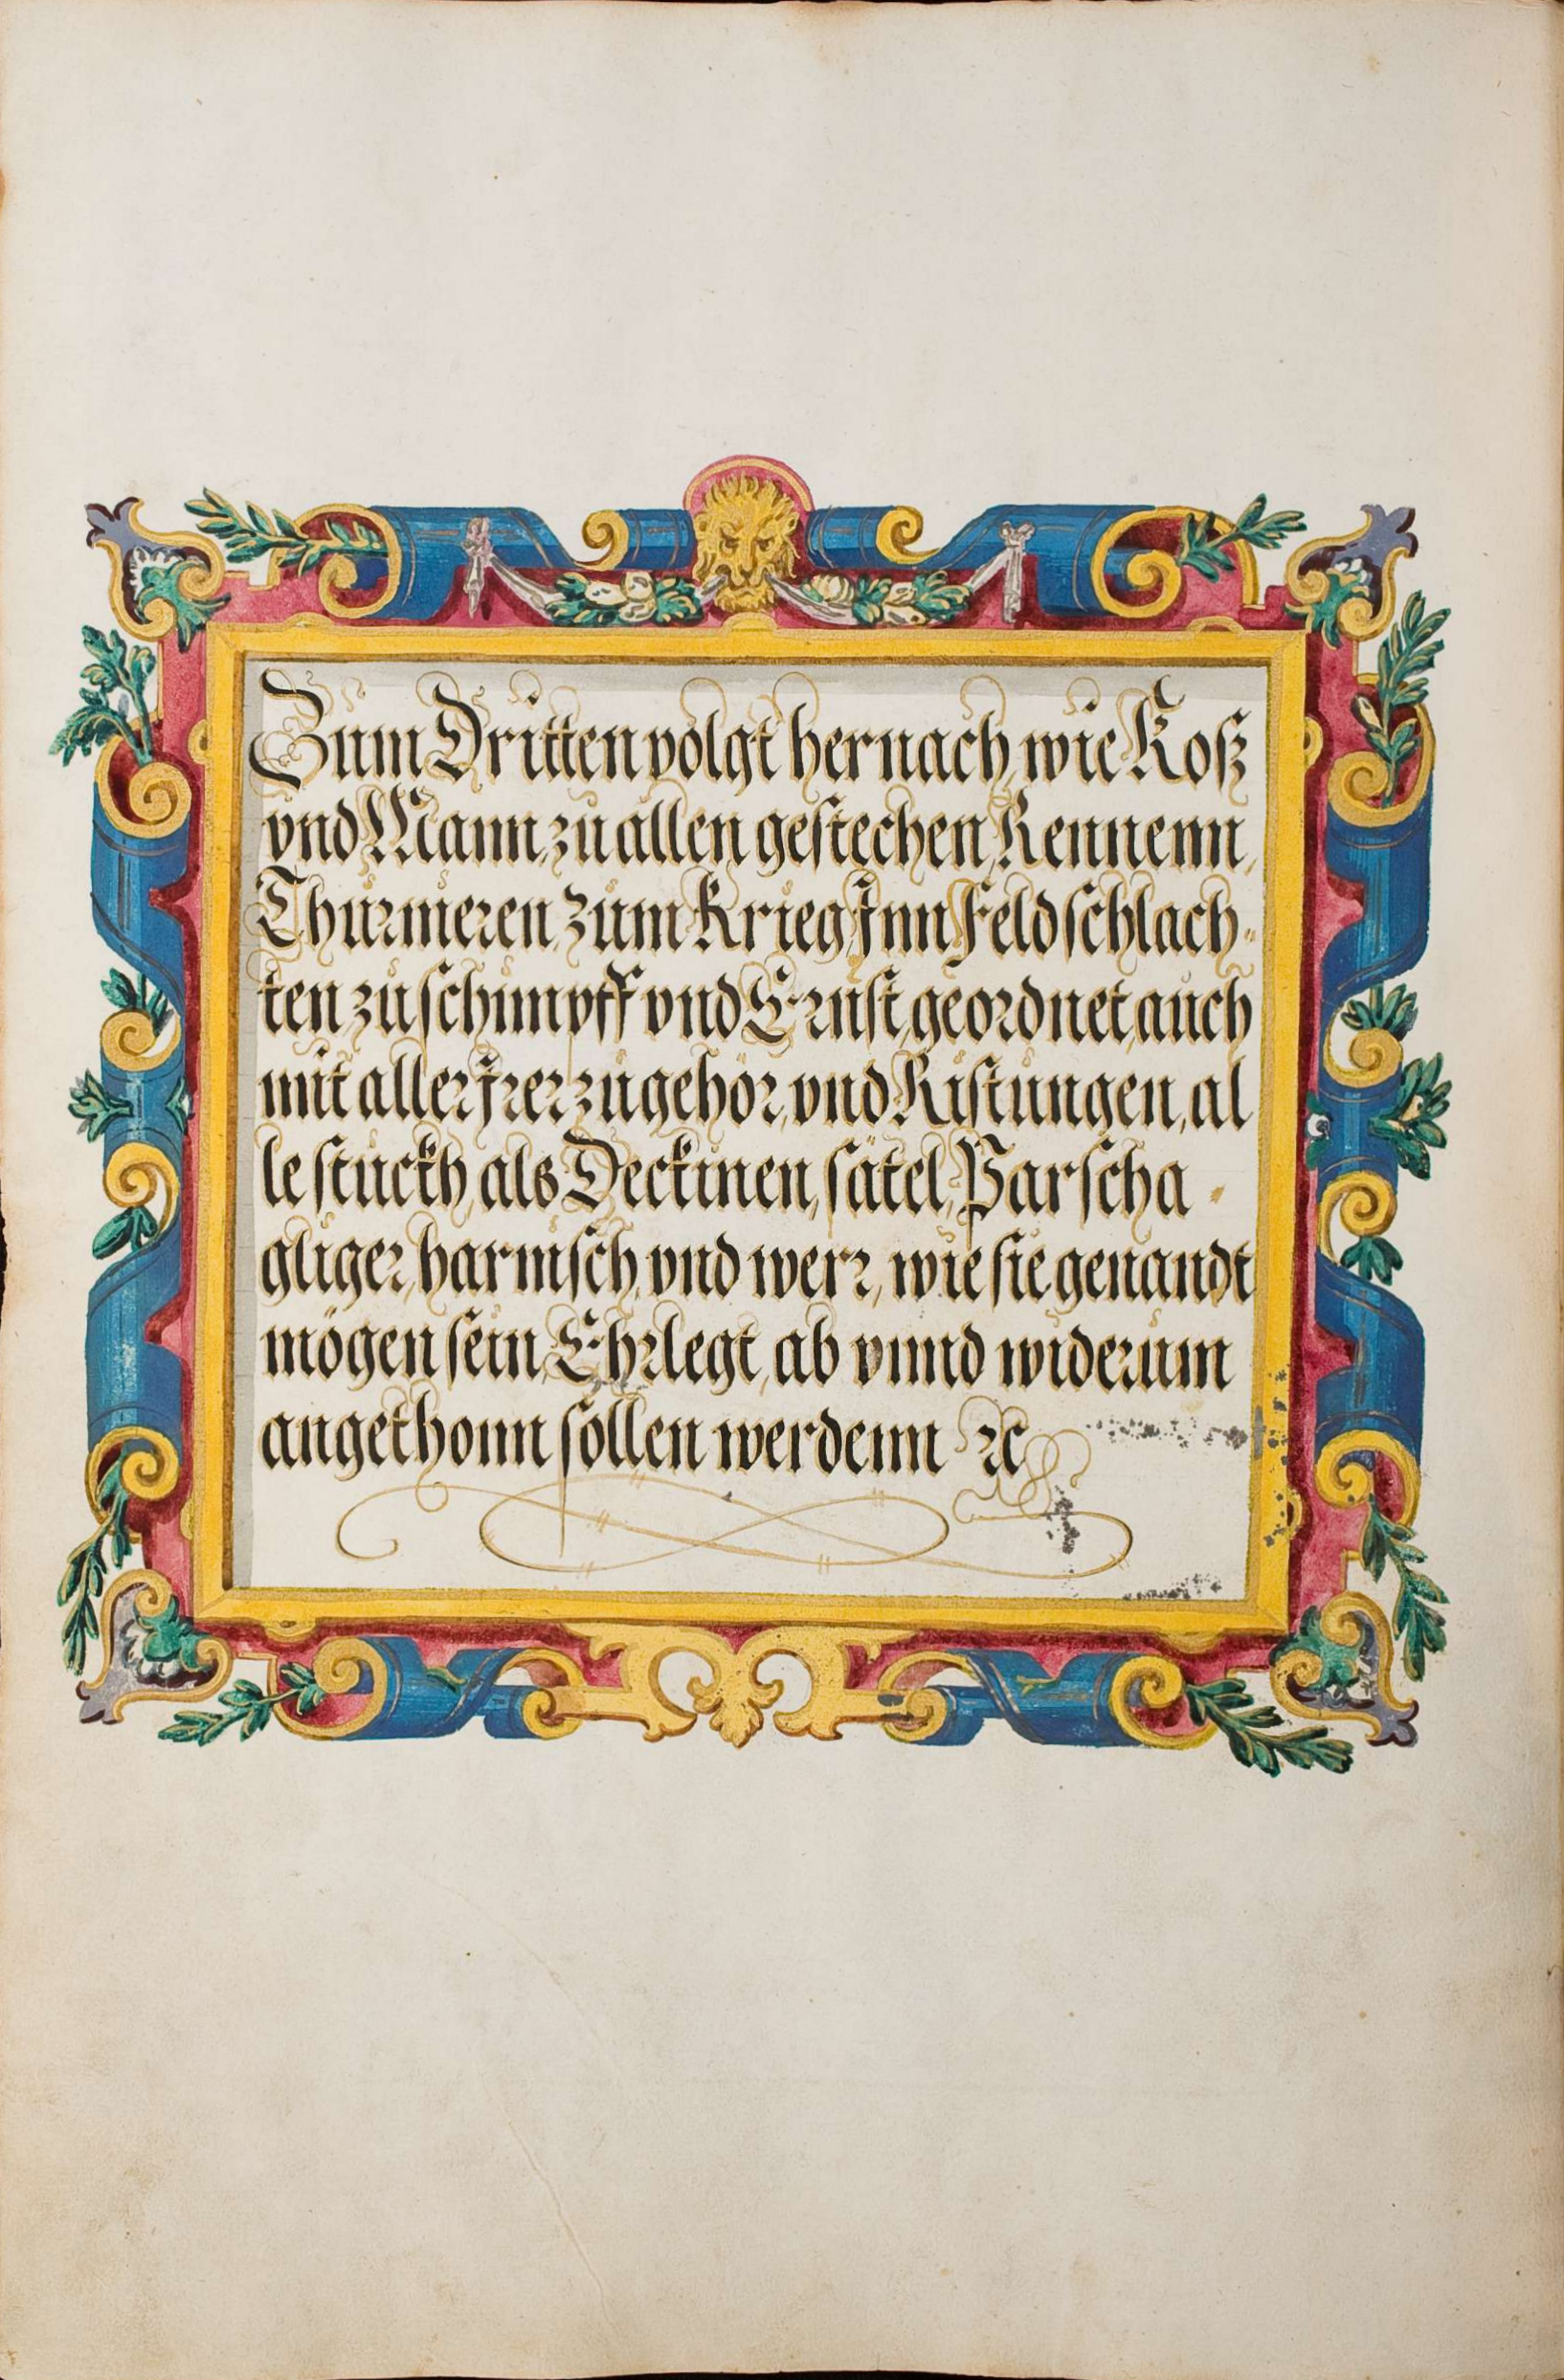 Zum Dritten volgt hernach, wie Roß
vnd Mann, zu allen gestechen, Rennenn,
Thurnieren, Zum Krieg Jnn Feldschlach-
ten zu schimpff vnd Ernst, geordnet, auch
mit aller Jrer zugehör, vnd Ristungen, al
le stuckh, als Deckinen, sätel, Parscha-
gliger, harnisch, vnd werr, wie sie genandt
mögen sein, Ehrlegt, ab vnnd widerum
angethonn sollen werdenn ꝛc